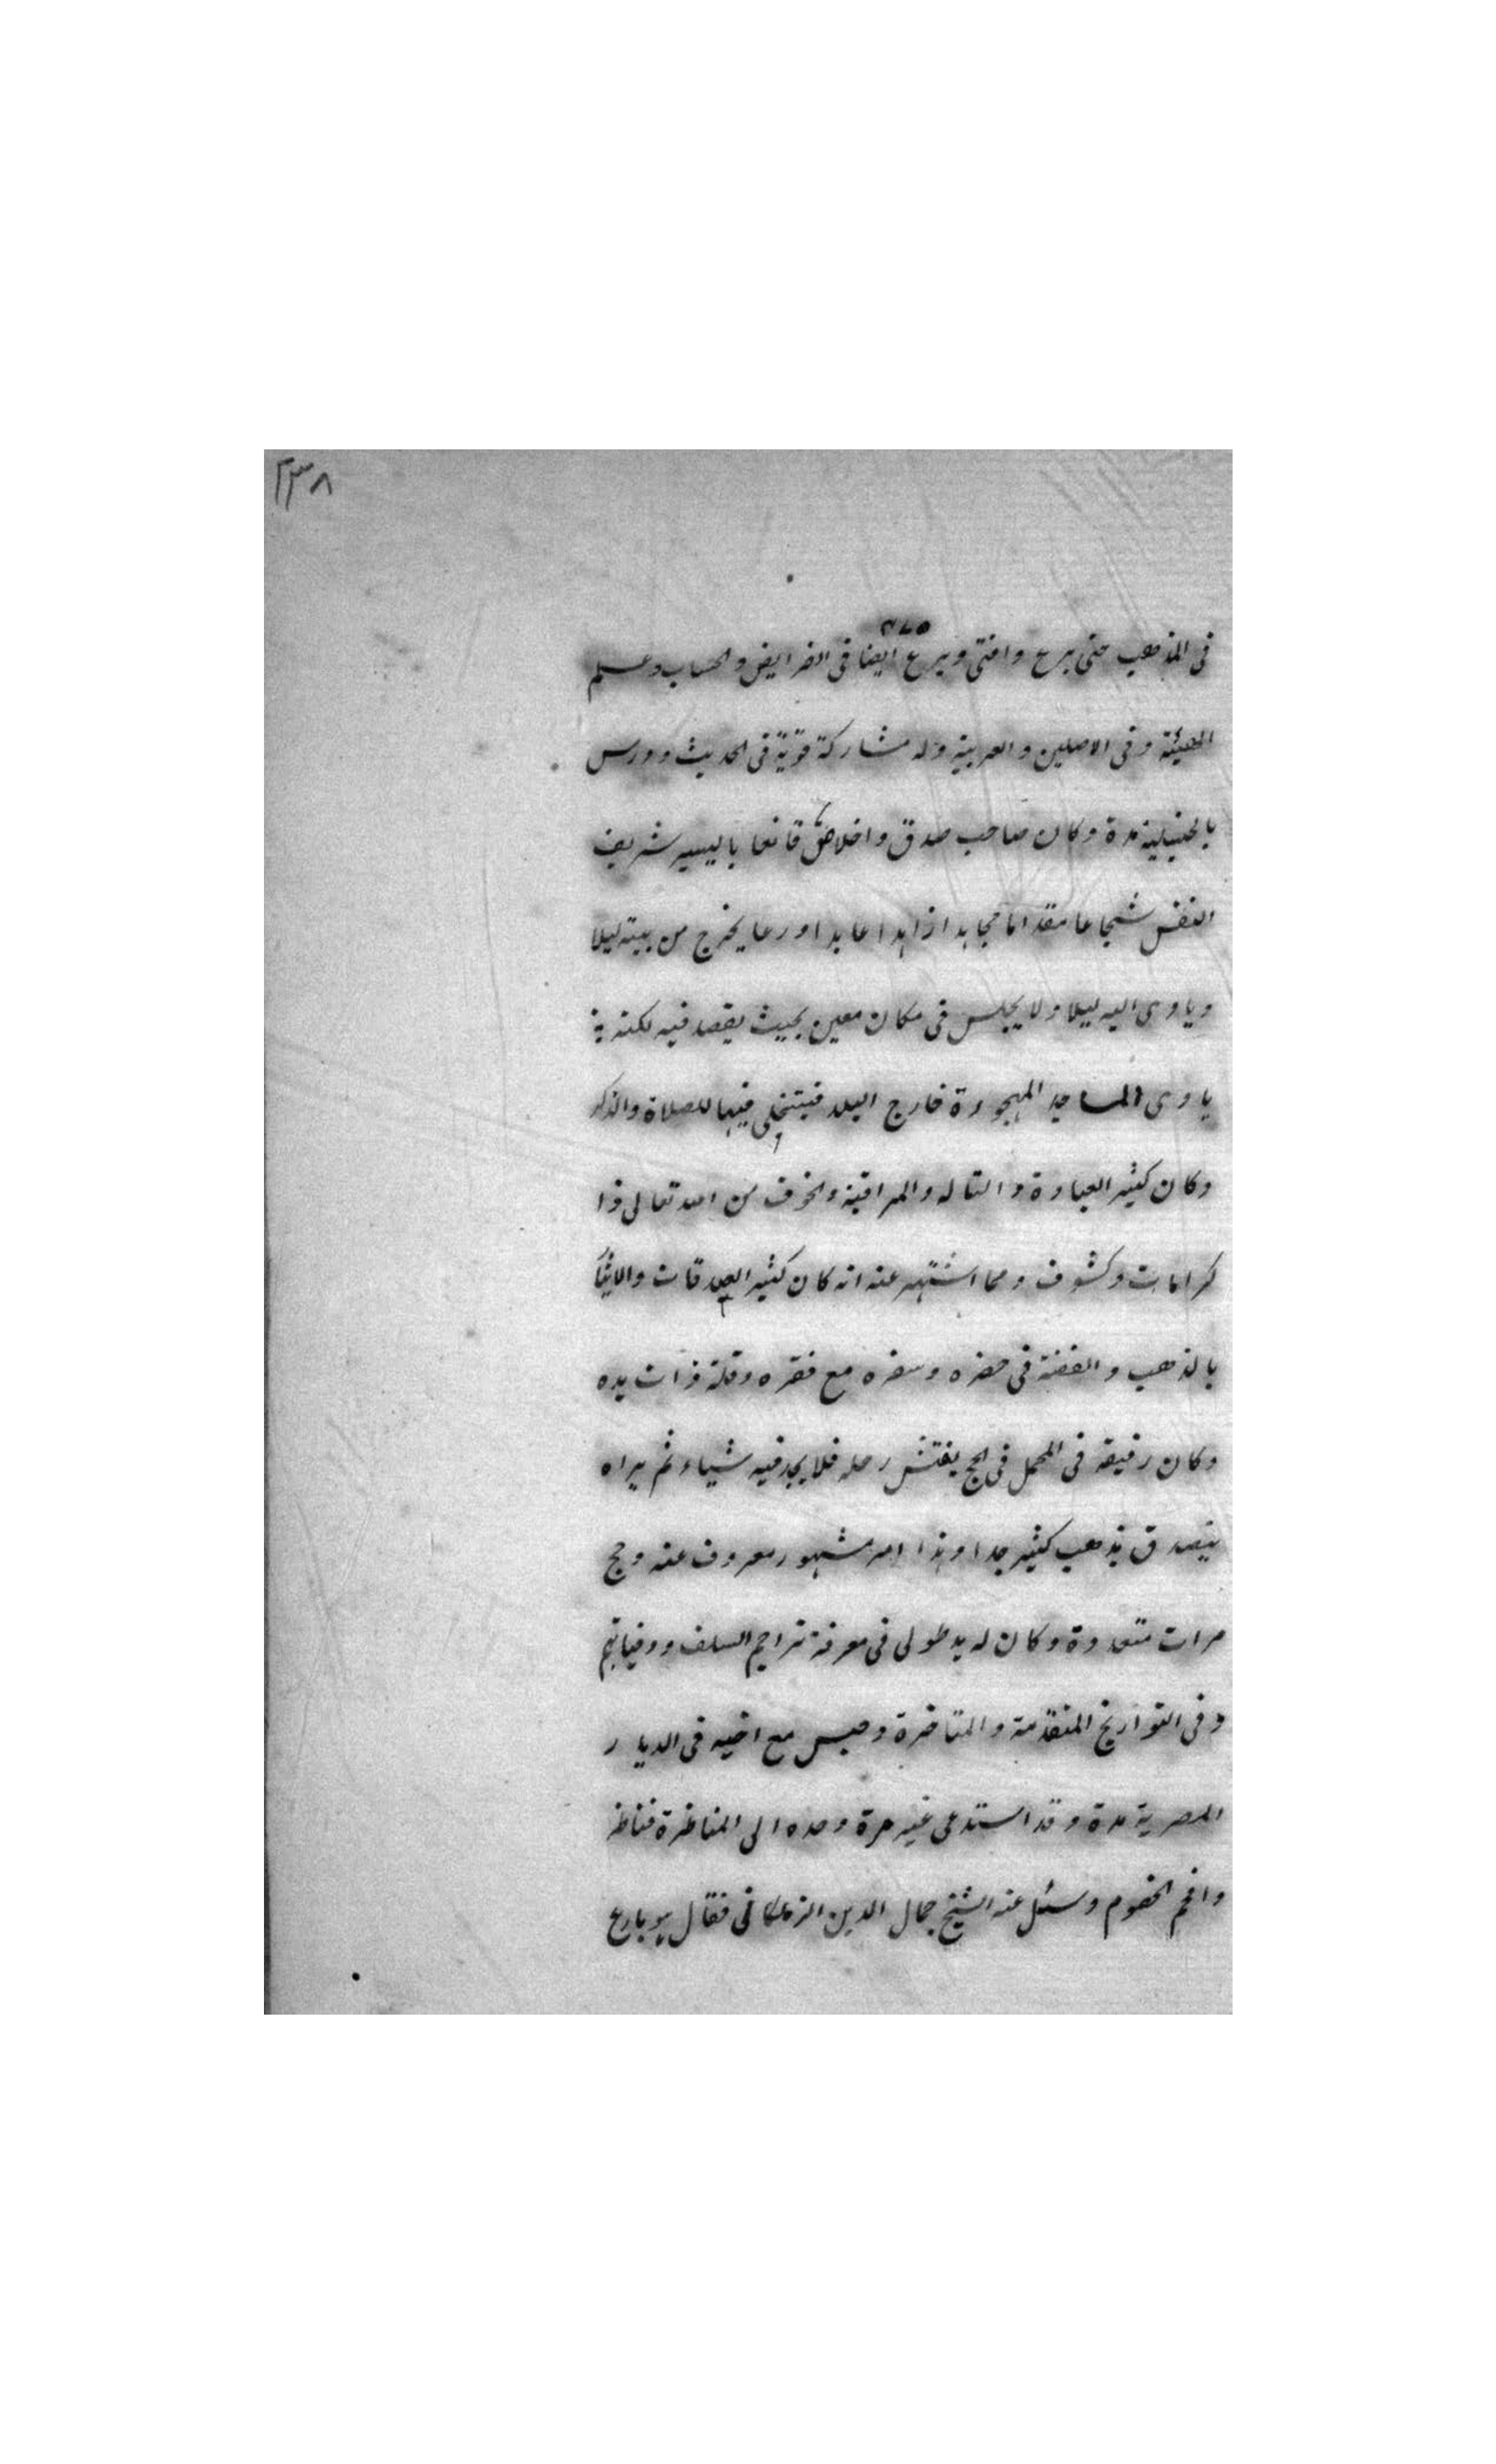 ٢٣٨
٤٧٥
فى المذهب حتى برع وافتى وبرع ايضا فى الفرايض والحساب وعلم
الهيئة وفى الاصلين والعربية وله مشاركة قويّة فى الحديث ودرس
بالحنبلية مدة وكان صاحب صدق واخلاص قانعا باليسير شريف
النفس شجاعا مقداما مجاهدا زاهدا عابدا ورعا يخرج من بيته ليلا
وياوى اليه ليلا ولا يجلس فى مكان معين بحيث يقصد فيه لكنه
ياوى المساجد المهجورة خارج البلد فيتخلى فيها للصلاة والذكر
وكان كثير العبادة والتاله والمراقبة والخوف من الله تعالى ذا
كرامات وكشوف ومما اشتهر عنه انه كان كثير الصدقات والايثار
بالذهب والفضة فى حضره وسفره مع فقره وقلة ذات يده
وكان رفيقه فى المحمل فى الحج يفتش رحله فلا يجد فيه شياء ثم يراه
يتصدق بذهب كثير جدا وهذا امر مشهور معروف عنه وحج
مرات متعددة وكان له يد طولى فى معرفة تراجم السلف ووفياتهم
وفى التواريخ المتقدمة والمتاخرة وحبس مع اخيه فى الديار
المصرية مدة وقد استدعى غير مرة وحده الى المناظرة فناظر
وافحم الخصوم وسئل عنه الشيخ جمال الدين الزملكانى فقال هو بارع